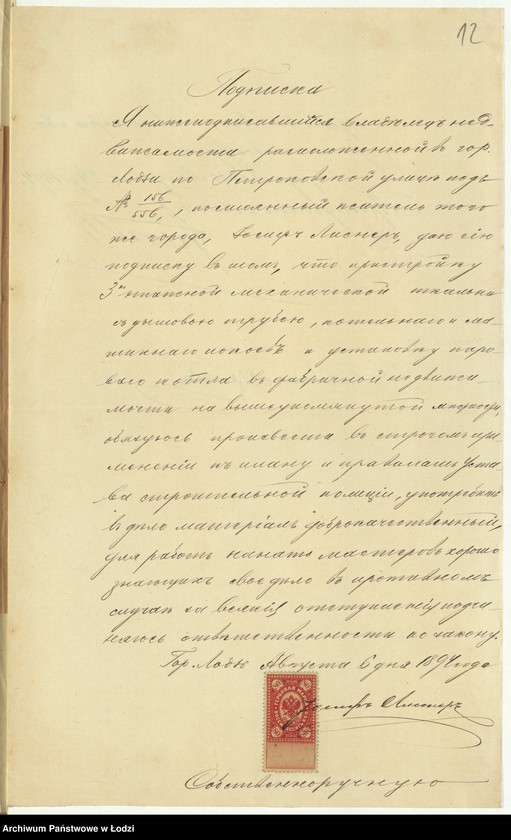 12
Подписка
Я нижеподписавшійся владѣлецъ нед-
вижимости расположенной въ гор.
Лодзи по Петроковской улицѣ подъ
№ 156/556, постоянный житель того
же города, Іосифъ Лиснеръ, даю сію
подписку въ томъ, что пристройку
3хъ этажной механической ткальни
съ дымовою трубою, котельнаго и ма-
шиннаго и установку паро-
ваго котла въ фабричной недвижи-
мости на вышеупомянутой
обязуюсь произвести въ строгомъ при-
мѣненіи къ плану и правиламъ Уста-
ва строительной полиціи, употребить
въ дѣло матеріалъ доброкачественный,
для работъ нанять мастеровъ хорошо
знающихъ свое дѣло въ противномъ
случаѣ за всякія отступленія подчи-
няюсь отвѣтственности по закону.
Гор. Лодзь Августа 6 дня 1894 года
Іосифъ Лиснеръ
Собственноручную
Archiwum Państwowe w Łodzi